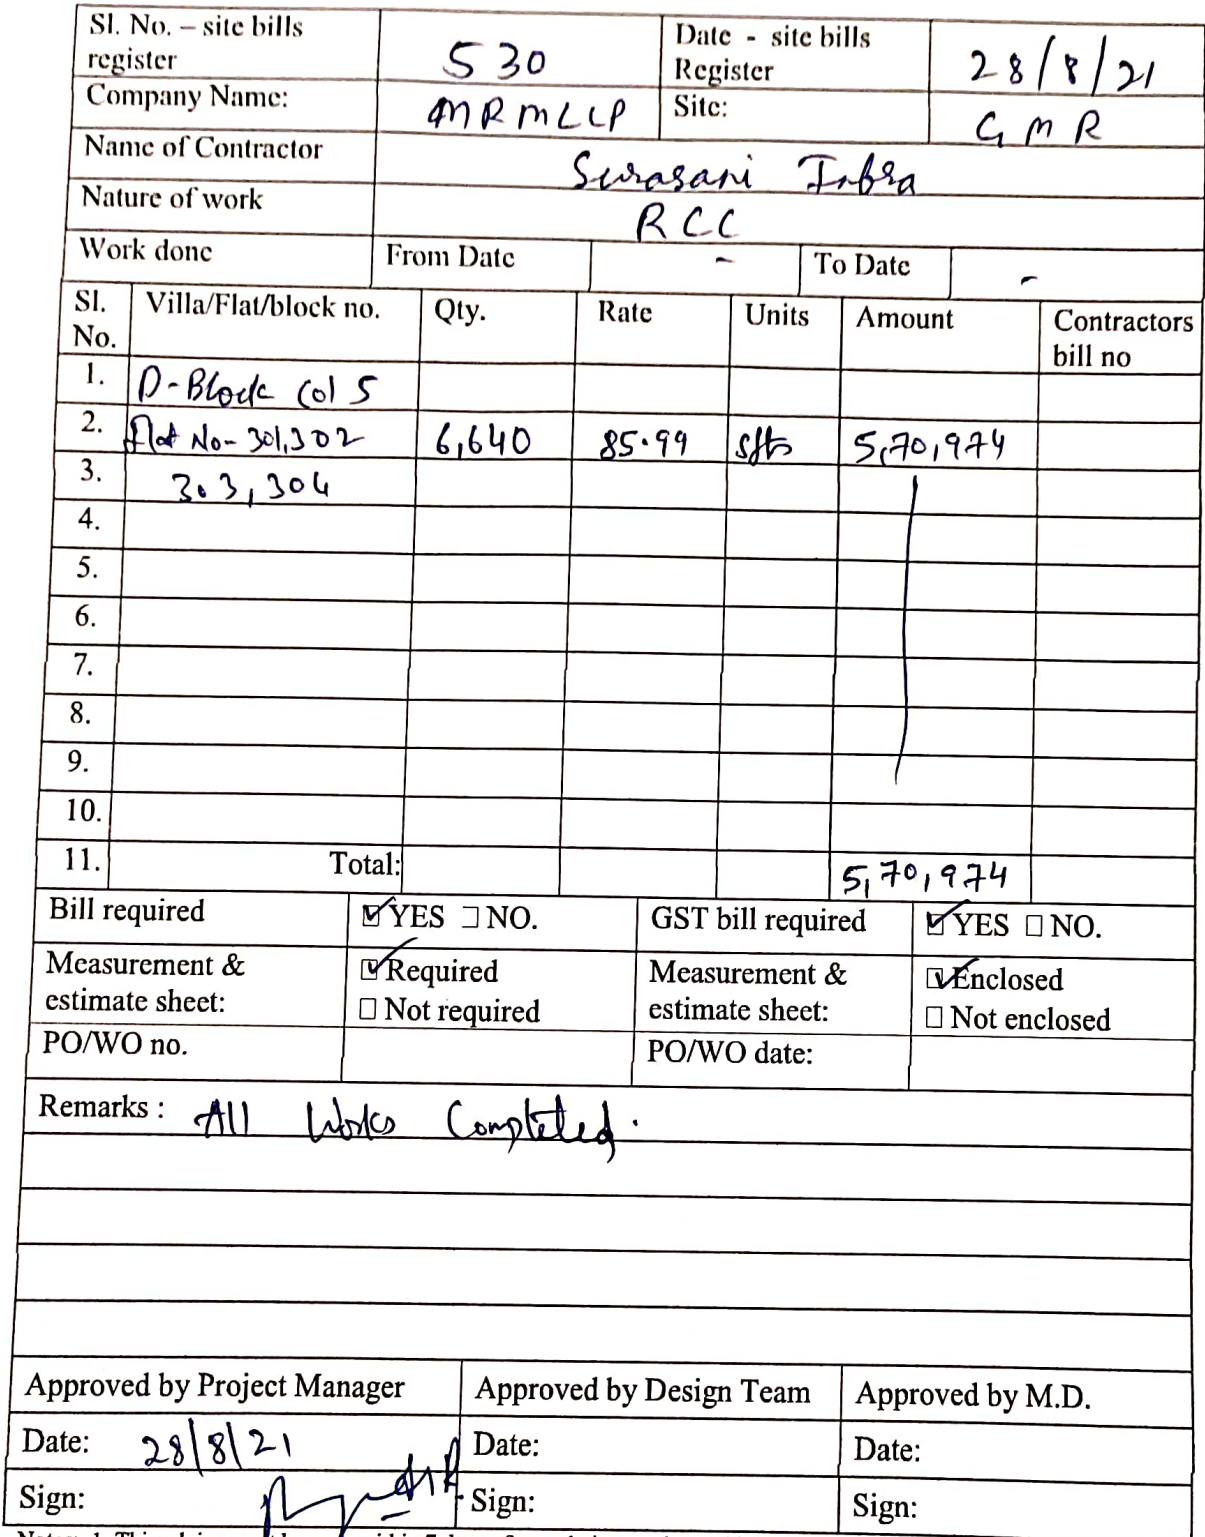 Sl. No. – site bills register 530 Date - site bills Register 28/8/21
Company Name: MRMLLP Site: GMR
Name of Contractor Surasani Infra
Nature of work RCC
Work done From Date - To Date -
Sl. No. Villa/Flat/block no. Qty. Rate Units Amount Contractors bill no
1. D-Block Col 5
2. Flat No- 301,302 6,640 85.99 sfts 5,70,974
3. 303, 304
4.
5.
6.
7.
8.
9.
10.
11. Total: 5,70,974
Bill required ☑YES ☐NO. GST bill required ☑YES ☐NO.
Measurement & estimate sheet: ☑Required Measurement & estimate sheet: ☑Enclosed
☐ Not required ☐ Not enclosed
PO/WO no. PO/WO date:
Remarks : All Works Completed.
Approved by Project Manager Approved by Design Team Approved by M.D.
Date: 28/8/21 Date: Date:
Sign: Sign: Sign: